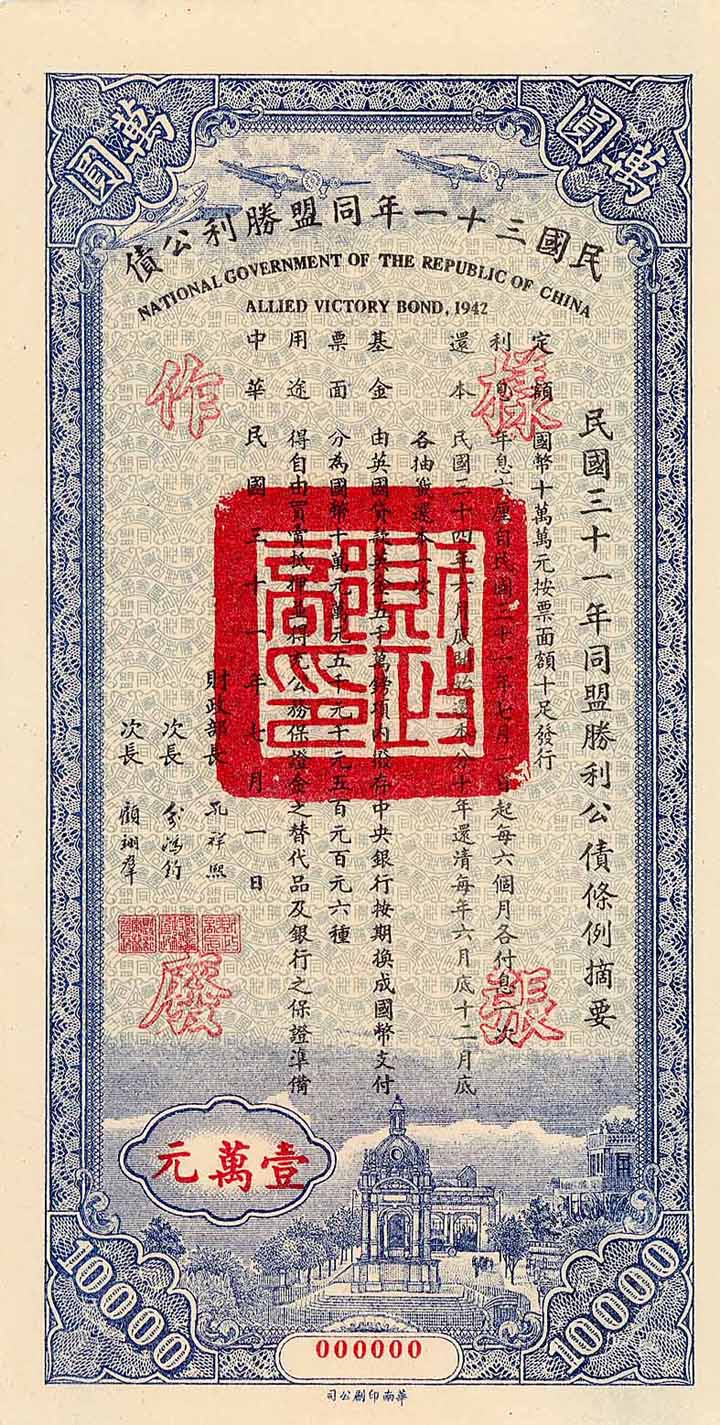 萬圓
萬圓
民國三十一年同盟勝利公債
NATIONAL GOVERNMENT OF THE REPUBLIC OF CHINA
ALLIED VICTORY BOND, 1942
民國三十一年同盟勝利公債條例摘要
定額 國幣十萬萬元按票面額十足發行
利息 年息六厘自民國三十一年七月一日起每六個月各付息一次
還本 民國三十四年六月底開始還本分十年還清每年六月底十二月底
各抽籤還本一次
基金 由英國貸款英金五千萬鎊項內撥存中央銀行按期換成國幣支付
票面 分為國幣十萬元萬元五千元千元五百元百元六種
用途 得自由買賣抵押並可充公務保證金之替代品及銀行之保證準備
中華民國三十一年七月一日
財政部長 孔祥熙
次長 俞鴻鈞
次長 顧翊羣
財政部印
樣張
作廢
壹萬元
10000
10000
000000
華南印刷公司